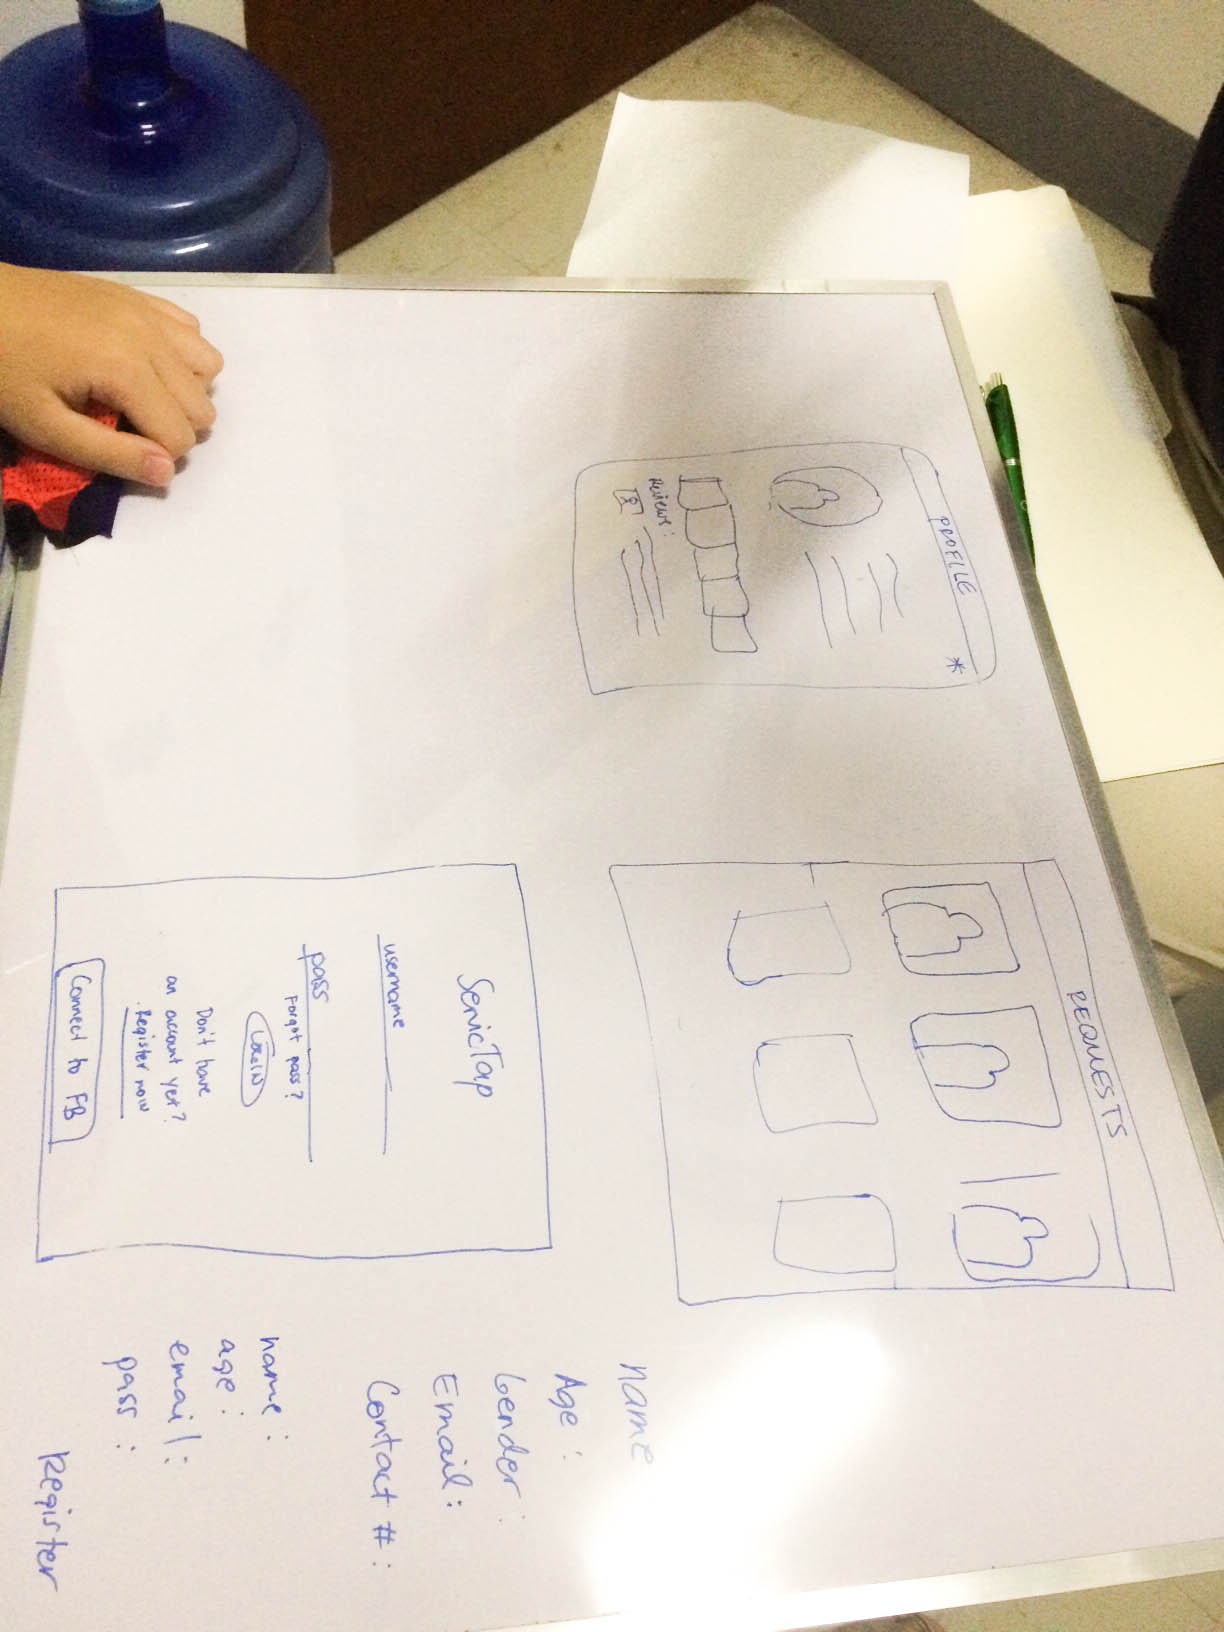 PROFILE
*
Reviews:
REQUESTS
ServicTap
username
pass
Forgot pass?
LOGIN
Don't have
an account yet?
Register now
Connect to FB
name
Age :
Gender :
Email:
Contact #:
name :
age :
email:
pass :
Register